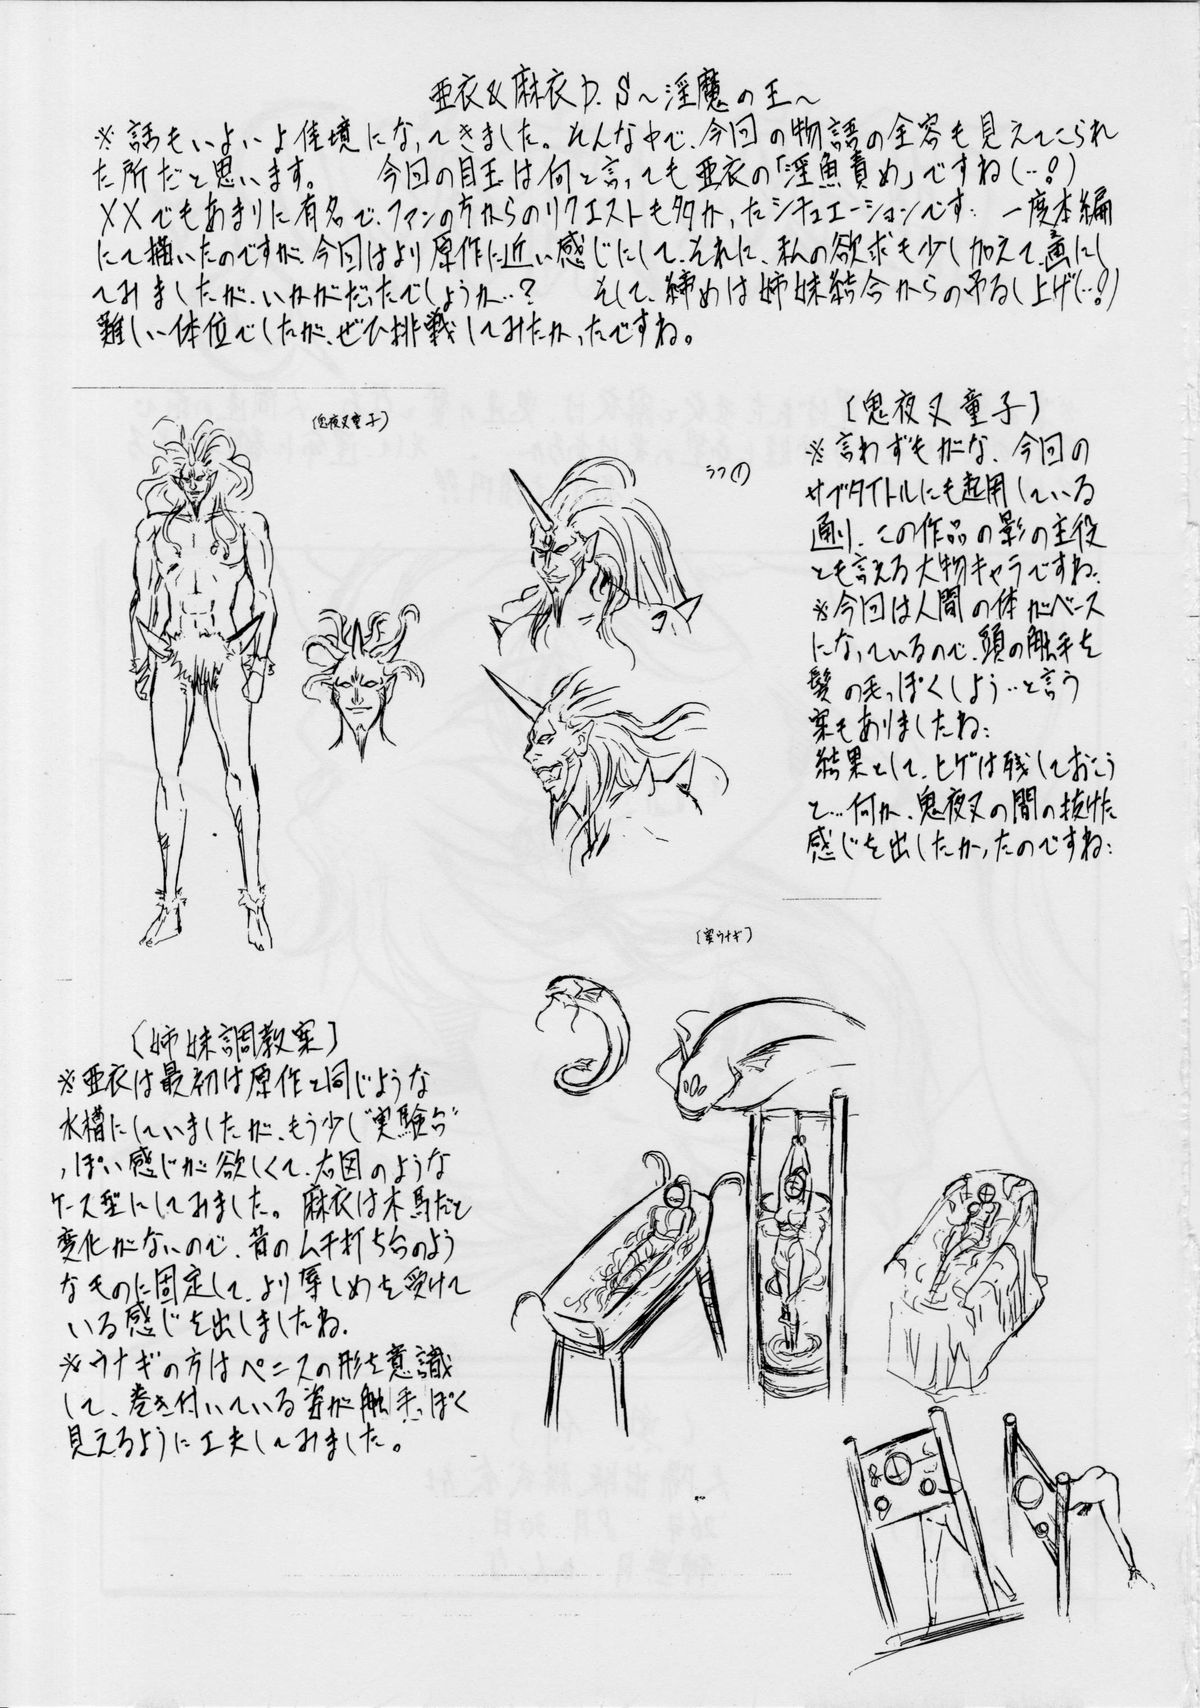 亜衣&麻衣D.S～淫魔の王～
※話もいよいよ佳境になってきました。そんな中で、今回の物語の全容も見えてこられ
た所だと思います。 今回の目玉は何と言っても亜衣の「淫魚責め」ですね(…!)
XXでもあまりに有名で、ファンの方からのリクエストも多かったシチュエーションです… 一度本編
にて描いたのですが、今回はより原作に近い感じにして、それに、私の欲求も少し加えて、画にし
てみましたが、いかがだったでしょうか…? そして、締めは姉妹結合からの吊るし上げ(…!)
難しい体位でしたが、ぜひ挑戦してみたかったですね。
(鬼夜叉童子)
ラフ①
〔鬼夜叉童子〕
※言わずもがな、今回の
サブタイトルにも起用している
通り、この作品の影の主役
とも言える大物キャラですね…
※今回は人間の体がベース
になっているので、頭の触手を
髪の毛っぽくしよう…と言う
案もありましたね…
結果として、ヒゲは残しておこう
と…何か、鬼夜叉の間の抜けた
感じを出したかったのですね…
ウナギ
〔姉妹調教案〕
※亜衣は最初は原作と同じような
水槽にしていましたが、もう少し"実験台"
っぽい感じが欲しくて、右図のような
ケース型にしてみました。麻衣は木馬だと
変化がないので、昔のムチ打ち台のよう
なものに固定して、より辱しめを受けて
いる感じを出しましたね…
※ウナギの方はペニスの形を意識
して、巻き付いている姿が触手っぽく
見えるように工夫してみました。